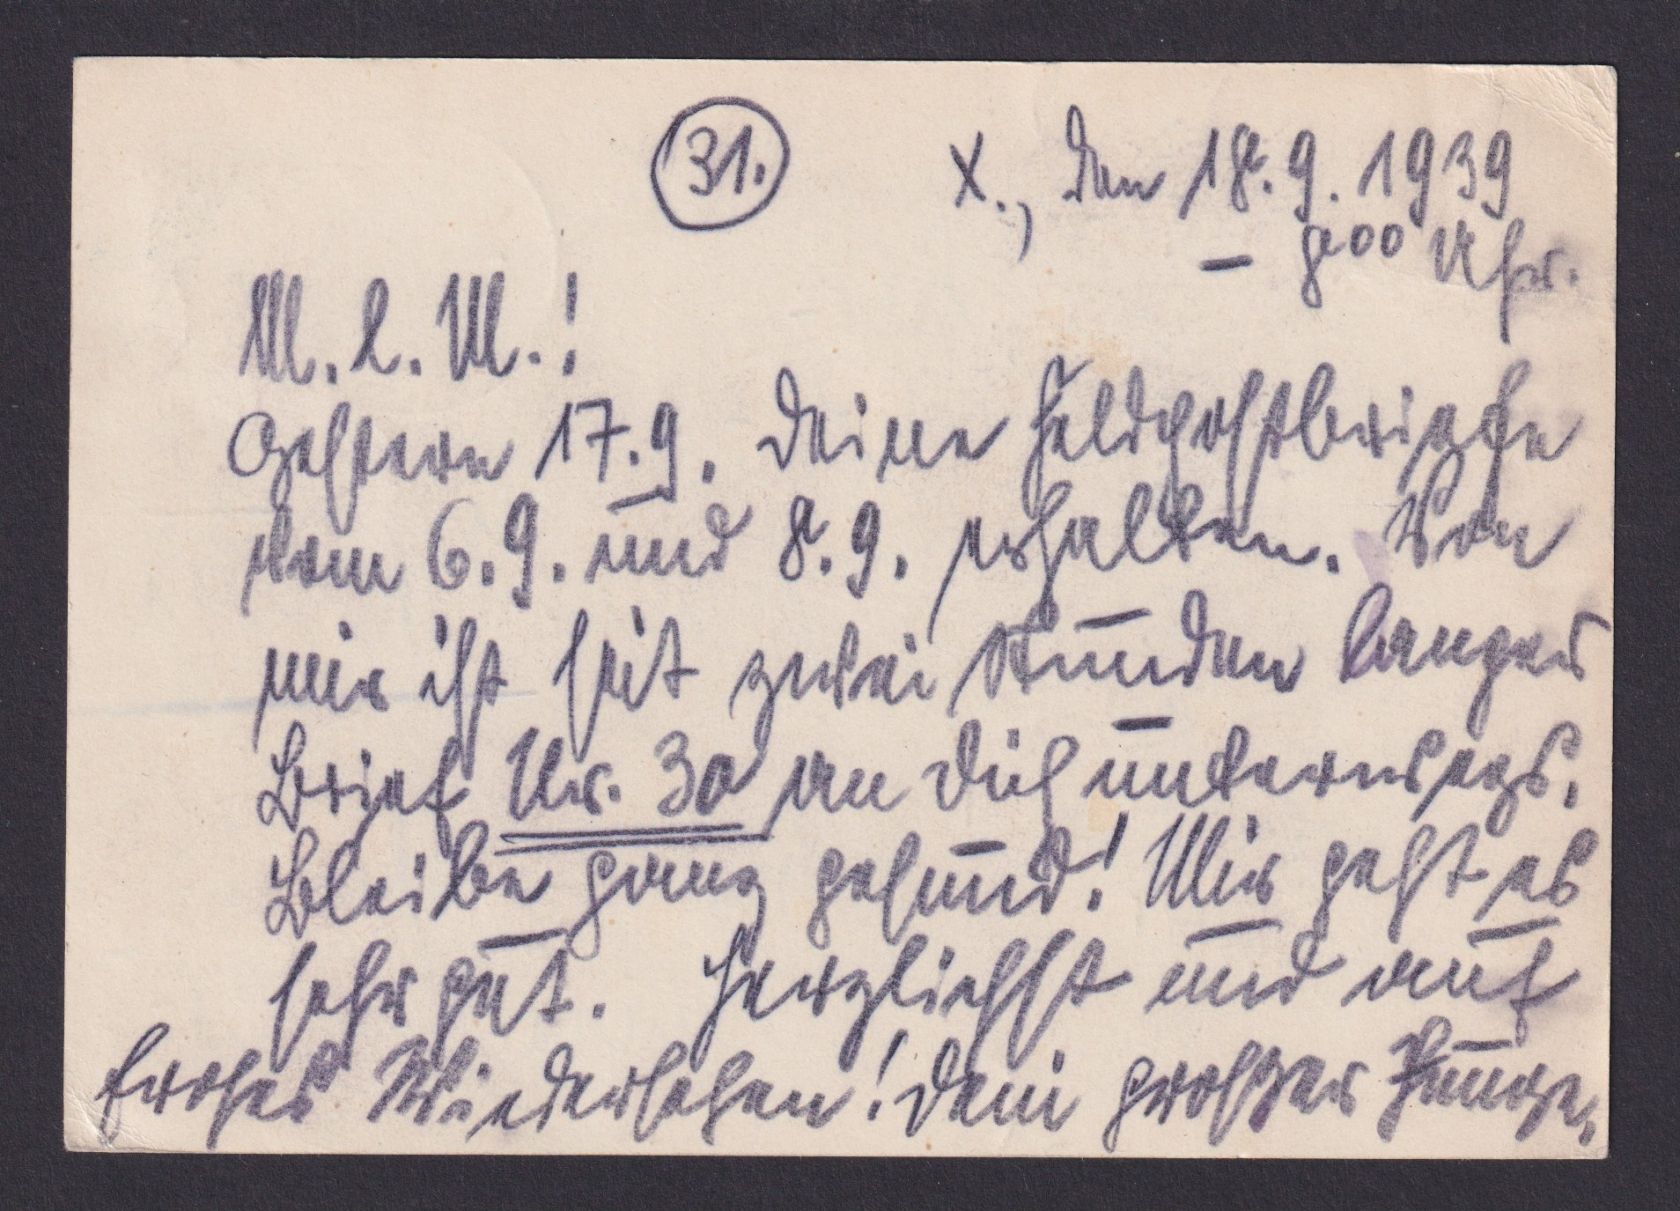 31.
X., den 18.9.1939
8.00 Uhr.
M. l. M.!
Gestern 17.9. Deine Feldpostbriefe
vom 6.9. und 8.9. erhalten. Von
mir ist seit zwei Stunden langer
Brief Nr. 30 an Dich unterwegs.
Bleibe ganz gesund! Mir geht es
sehr gut. Herzlichst und auf
frohes Wiedersehen! Dein großer Junge.